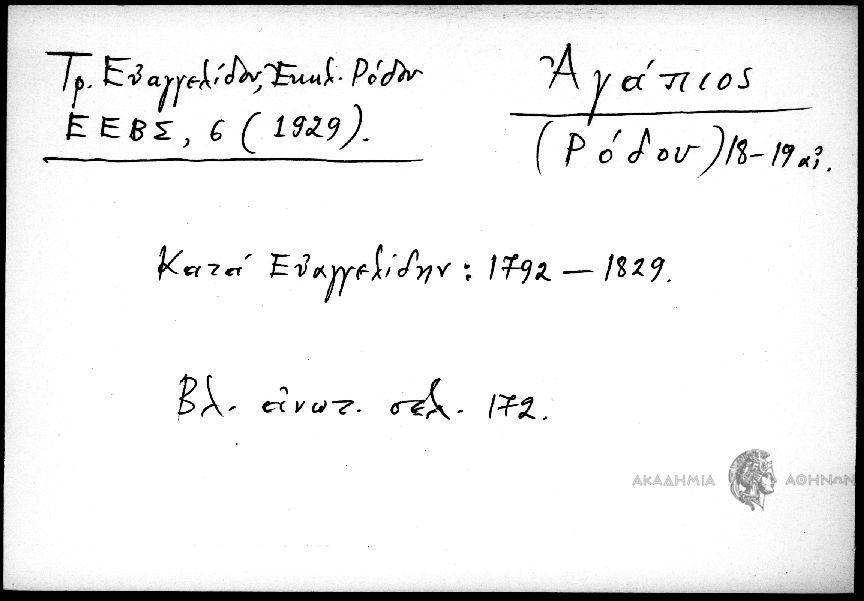 Τρ. Εὐαγγελίδου, Ἐκκλ. Ρόδου
ΕΕΒΣ, 6 (1929).
Ἀγάπιος
(Ρόδου) 18-19 αἰ.
Κατά Εὐαγγελίδην: 1792 — 1829.
Βλ. ἀνωτ. σελ. 172.
ΑΚΑΔΗΜΙΑ ΑΘΗΝΩΝ